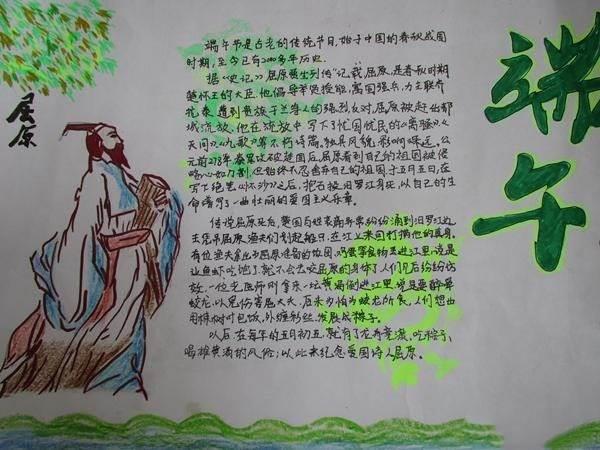 端午
屈原
端午节是古老的传统节日,始于中国的春秋战国
时期,至今已有2000多年历史。
据《史记》屈原贾生列传"记载,屈原,是春秋时期
楚怀王的大臣.他倡导举贤授能,富国强兵,力主联齐
抗秦,遭到贵族子兰等人的强烈反对,屈原被赶出都
城流放,他在流放中,写下了忧国忧民的《离骚》《
天问》《九歌》等不朽诗篇,独具风貌,影响深远.公
元前278年,秦军攻破楚国后,屈原看到自己的祖国被侵
略,心如刀割,但始终不忍舍弃自己的祖国,于五月五日,在
写下绝笔《怀沙》之后,抱石投汨罗江身死,以自己的生
命谱写了一曲壮丽的爱国主义乐章。
传说屈原死后,楚国百姓哀痛异常纷纷涌到汨罗江边
去凭吊屈原,渔夫们划起船只,在江上来回打捞他的真身.
有位渔夫拿出为屈原准备的饭团,鸡蛋等食物丢进江里,说是
让鱼虾吃饱了,就不会去咬屈原的身体了人们见后纷纷仿
效.一位老医师则拿来一坛黄酒倒进江里,说是要醉晕
蛟龙,以免伤害屈大夫,后来为怕为蛟龙所食,人们想出
用楝树叶包饭,外缠彩丝,发展成棕子。
以后,在每年的五月初五,就有了龙舟竞渡,吃粽子,
喝雄黄酒的风俗;以此来纪念爱国诗人屈原。